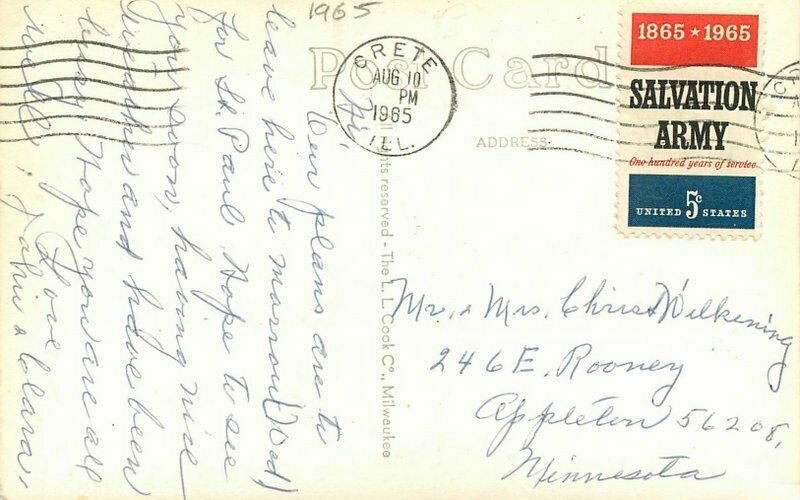 1965
Post Card
CRETE
AUG 10
PM
1965
ILL.
1865 ★ 1965
SALVATION
ARMY
One hundred years of service
UNITED 5c STATES
ADDRESS
Hi!
Our plans are to
leave here to morrow (Wed)
for St. Paul. Hope to see
you soon, having nice
weather and have been
busy. Hope you are all
well.
Love
John & Clara.
ll rights reserved - The L.L. Cook Co., Milwaukee
Mr. & Mrs. Chris Wilkening
246 E. Rooney
Appleton 56208,
Minnesota